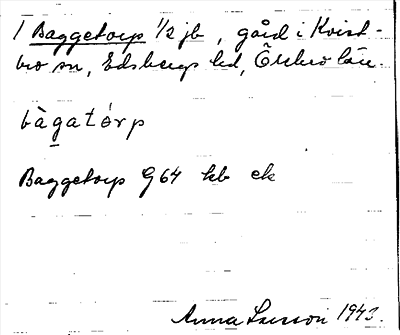 1 Baggetorp 1/2 jb, gård i Kvist-
bro sn, Edsbergs hd, Örebro län.
bàgatórp
Baggetorp G64 kb ek
Anna Larsson 1943.